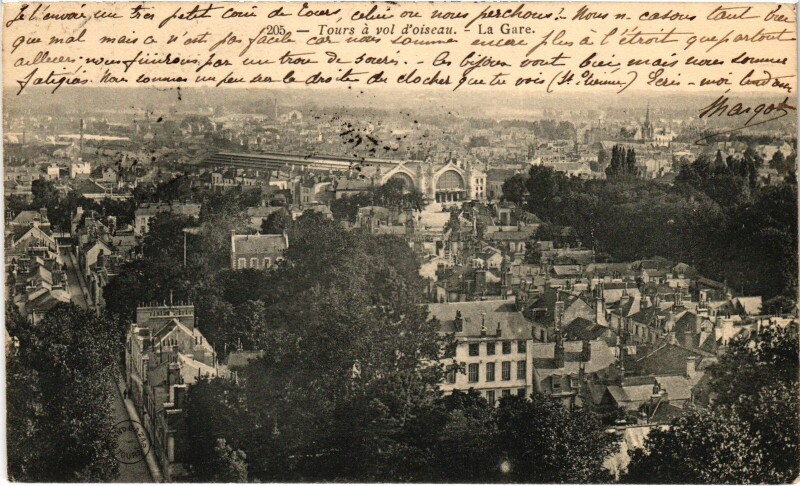 Je t'envoie un très petit coin de Tours, celui où nous perchons! Nous n. casons tant bien
205. — Tours à vol d'oiseau. - La Gare.
que mal mais ce n'est pas facile car nous sommes encore plus à l'étroit que partout
ailleurs. nous finirons par un trou de souris. - Les bijoux vont bien mais nous sommes
fatigués. Nous sommes un peu sur la droite du clocher que tu vois (St. Etienne) Écris-moi
Margot